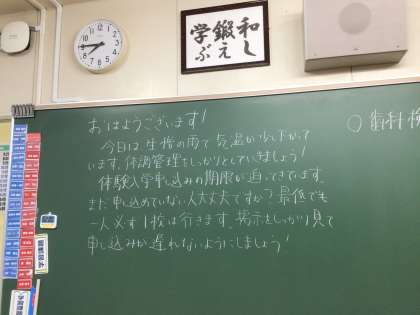 和し
鍛え
学ぶ
おはようございます!
今日は生憎の雨で気温が少し下がって
います。体調管理をしっかりとしていきましょう!
体験入学申し込みの期限が迫ってきています。
まだ申し込めていない人大丈夫ですか?最低でも
一人必ず1校は行きます。掲示をしっかり見て
申し込みが遅れないようにしましょう!
○歯科検